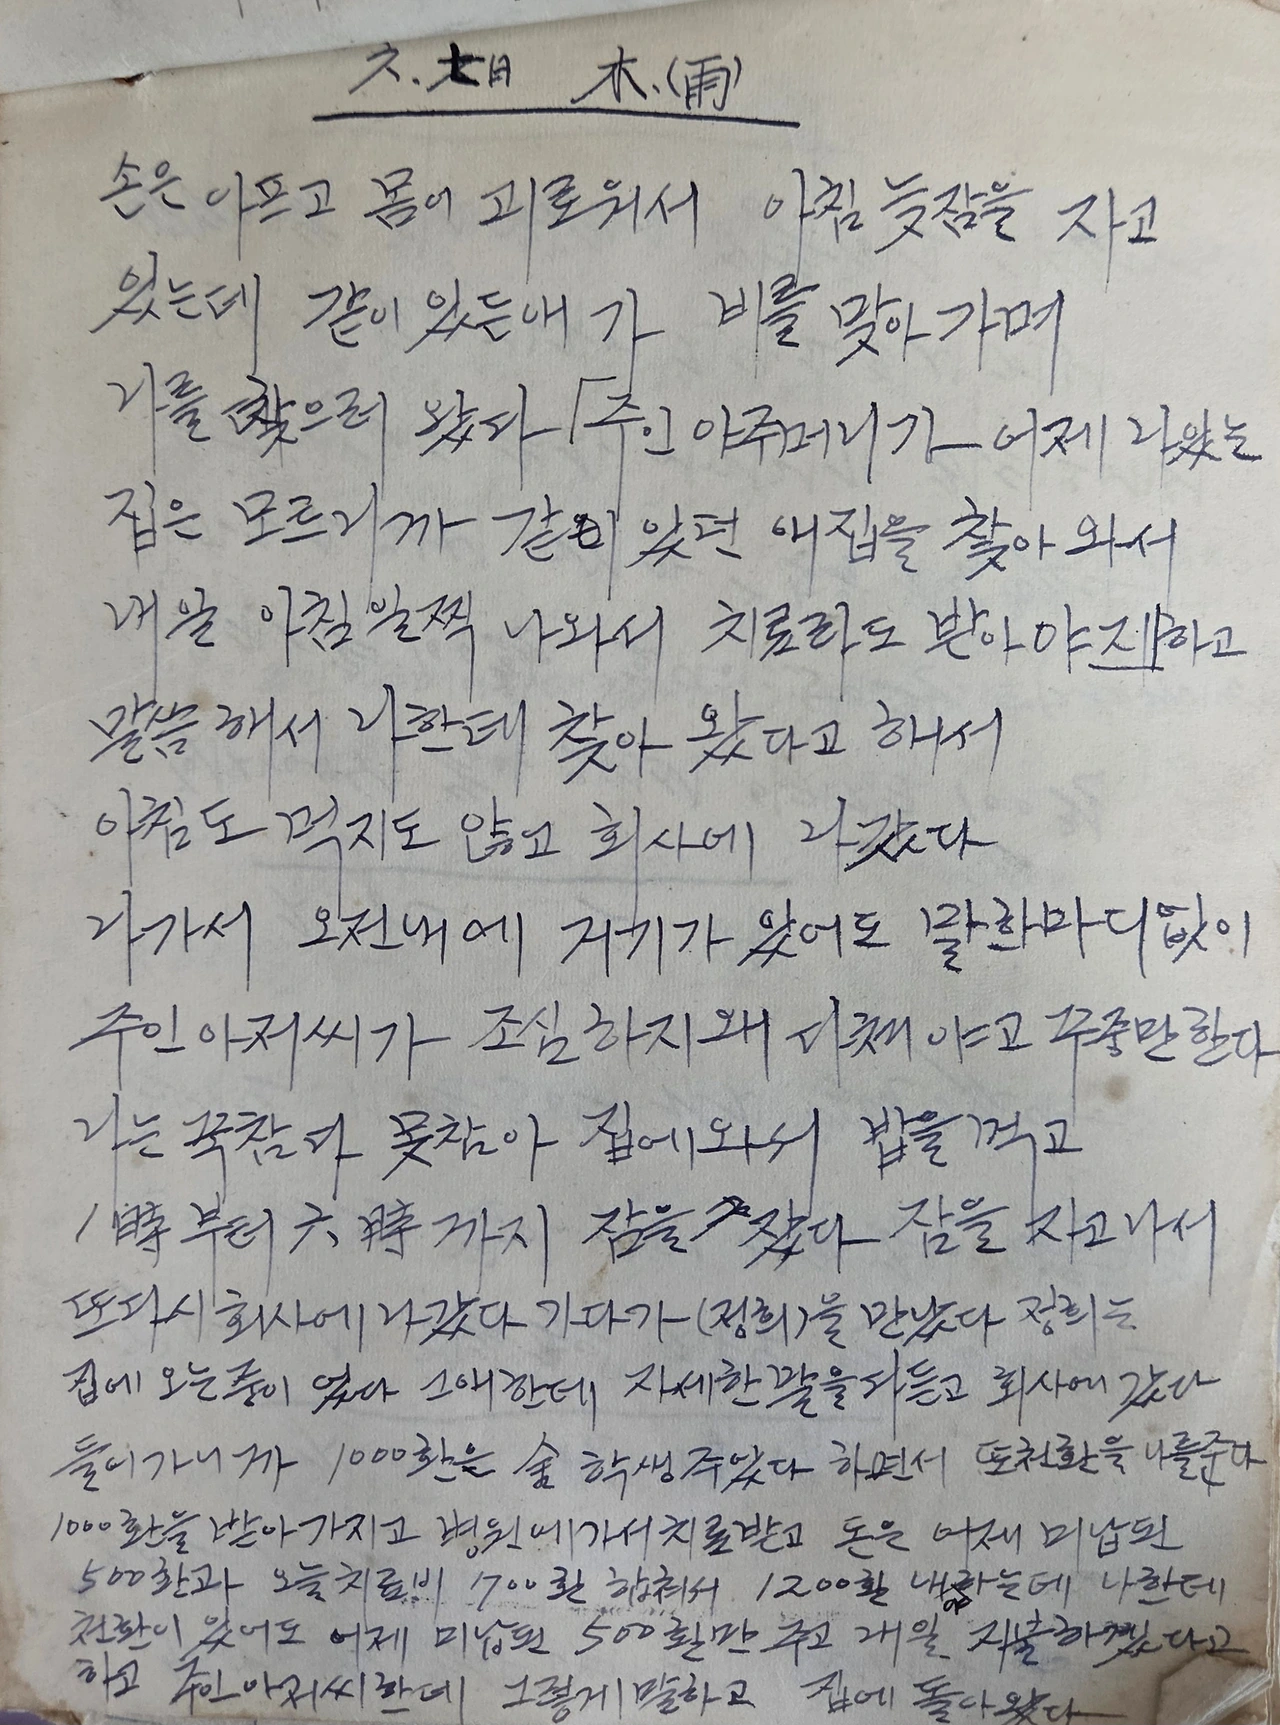 六.七日 木.(雨)
손은 아프고 몸이 괴로워서 아침 늦잠을 자고
있는데 같이 있든애가 비를 맞아가며
나를 찾으러 왔다 「주인 아주머니가 어제 나왔는
집은 모르니까 같이 있던 애집을 찾아 와서
내일 아침 일찍 나와서 치료라도 받아야지」하고
말씀해서 나한테 찾아 왔다고 해서
아침도 먹지도 않고 회사에 나갔다
나가서 오전내에 거기가 있어도 말 한마디없이
주인 아저씨가 조심하지 왜 다쳤야고 꾸중만한다
나는 꾹참다 못참아 집에와서 밥을 먹고
1時부터 六時까지 잠을 잤다 잠을 자고나서
또다시 회사에 나갔다 가다가 (정희)을 만났다 정희는
집에 오는중이 었다 그애한테 자세한말을 다듣고 회사에 갔다
들어가니까 1000환은 학생주었다 하면서 또천환을 나를준다
1000환을 받아가지고 병원에가서 치료받고 돈은 어제 미납된
500환과 오늘치료비 700환 합춰서 1200환 내야하는데 나한테
천환이 있어도 어제 미납된 500환만 주고 내일 지출하겠다고
하고 주인아저씨한테 그렇게 말하고 집에 돌아왔다